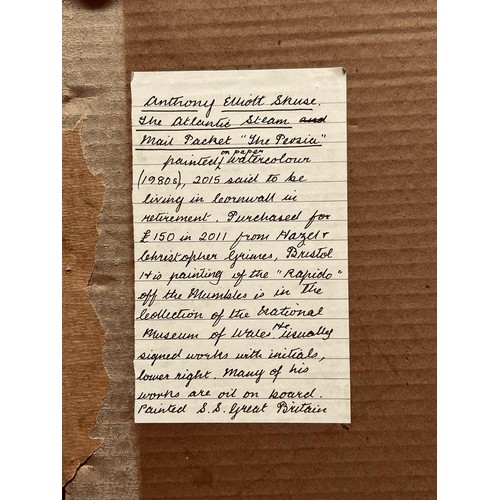 Anthony Elliott Skuse.
The Atlantic Steam and
Mail Packet "The Persia"
on paper
painted watercolour
(1980s), 2015 said to be
living in Cornwall in
retirement. Purchased for
£150 in 2011 from Hazel &
Christopher Grimes, Bristol
His painting of the "Rapido"
off the Mumbles is in the
Collection of the National
Museum of Wales He usually
signed works with initials,
lower right. Many of his
works are oil on board.
Painted S.S. Great Britain